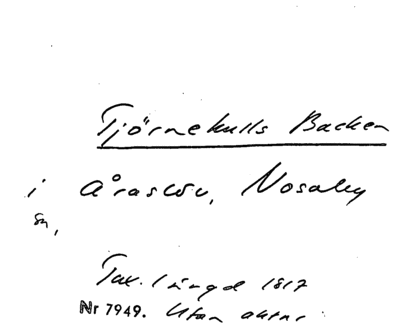 Tjörnekulls Backen
i Åraslöv, Nosaby
sn,
Tax. längd 1817
Nr 7949. Utan